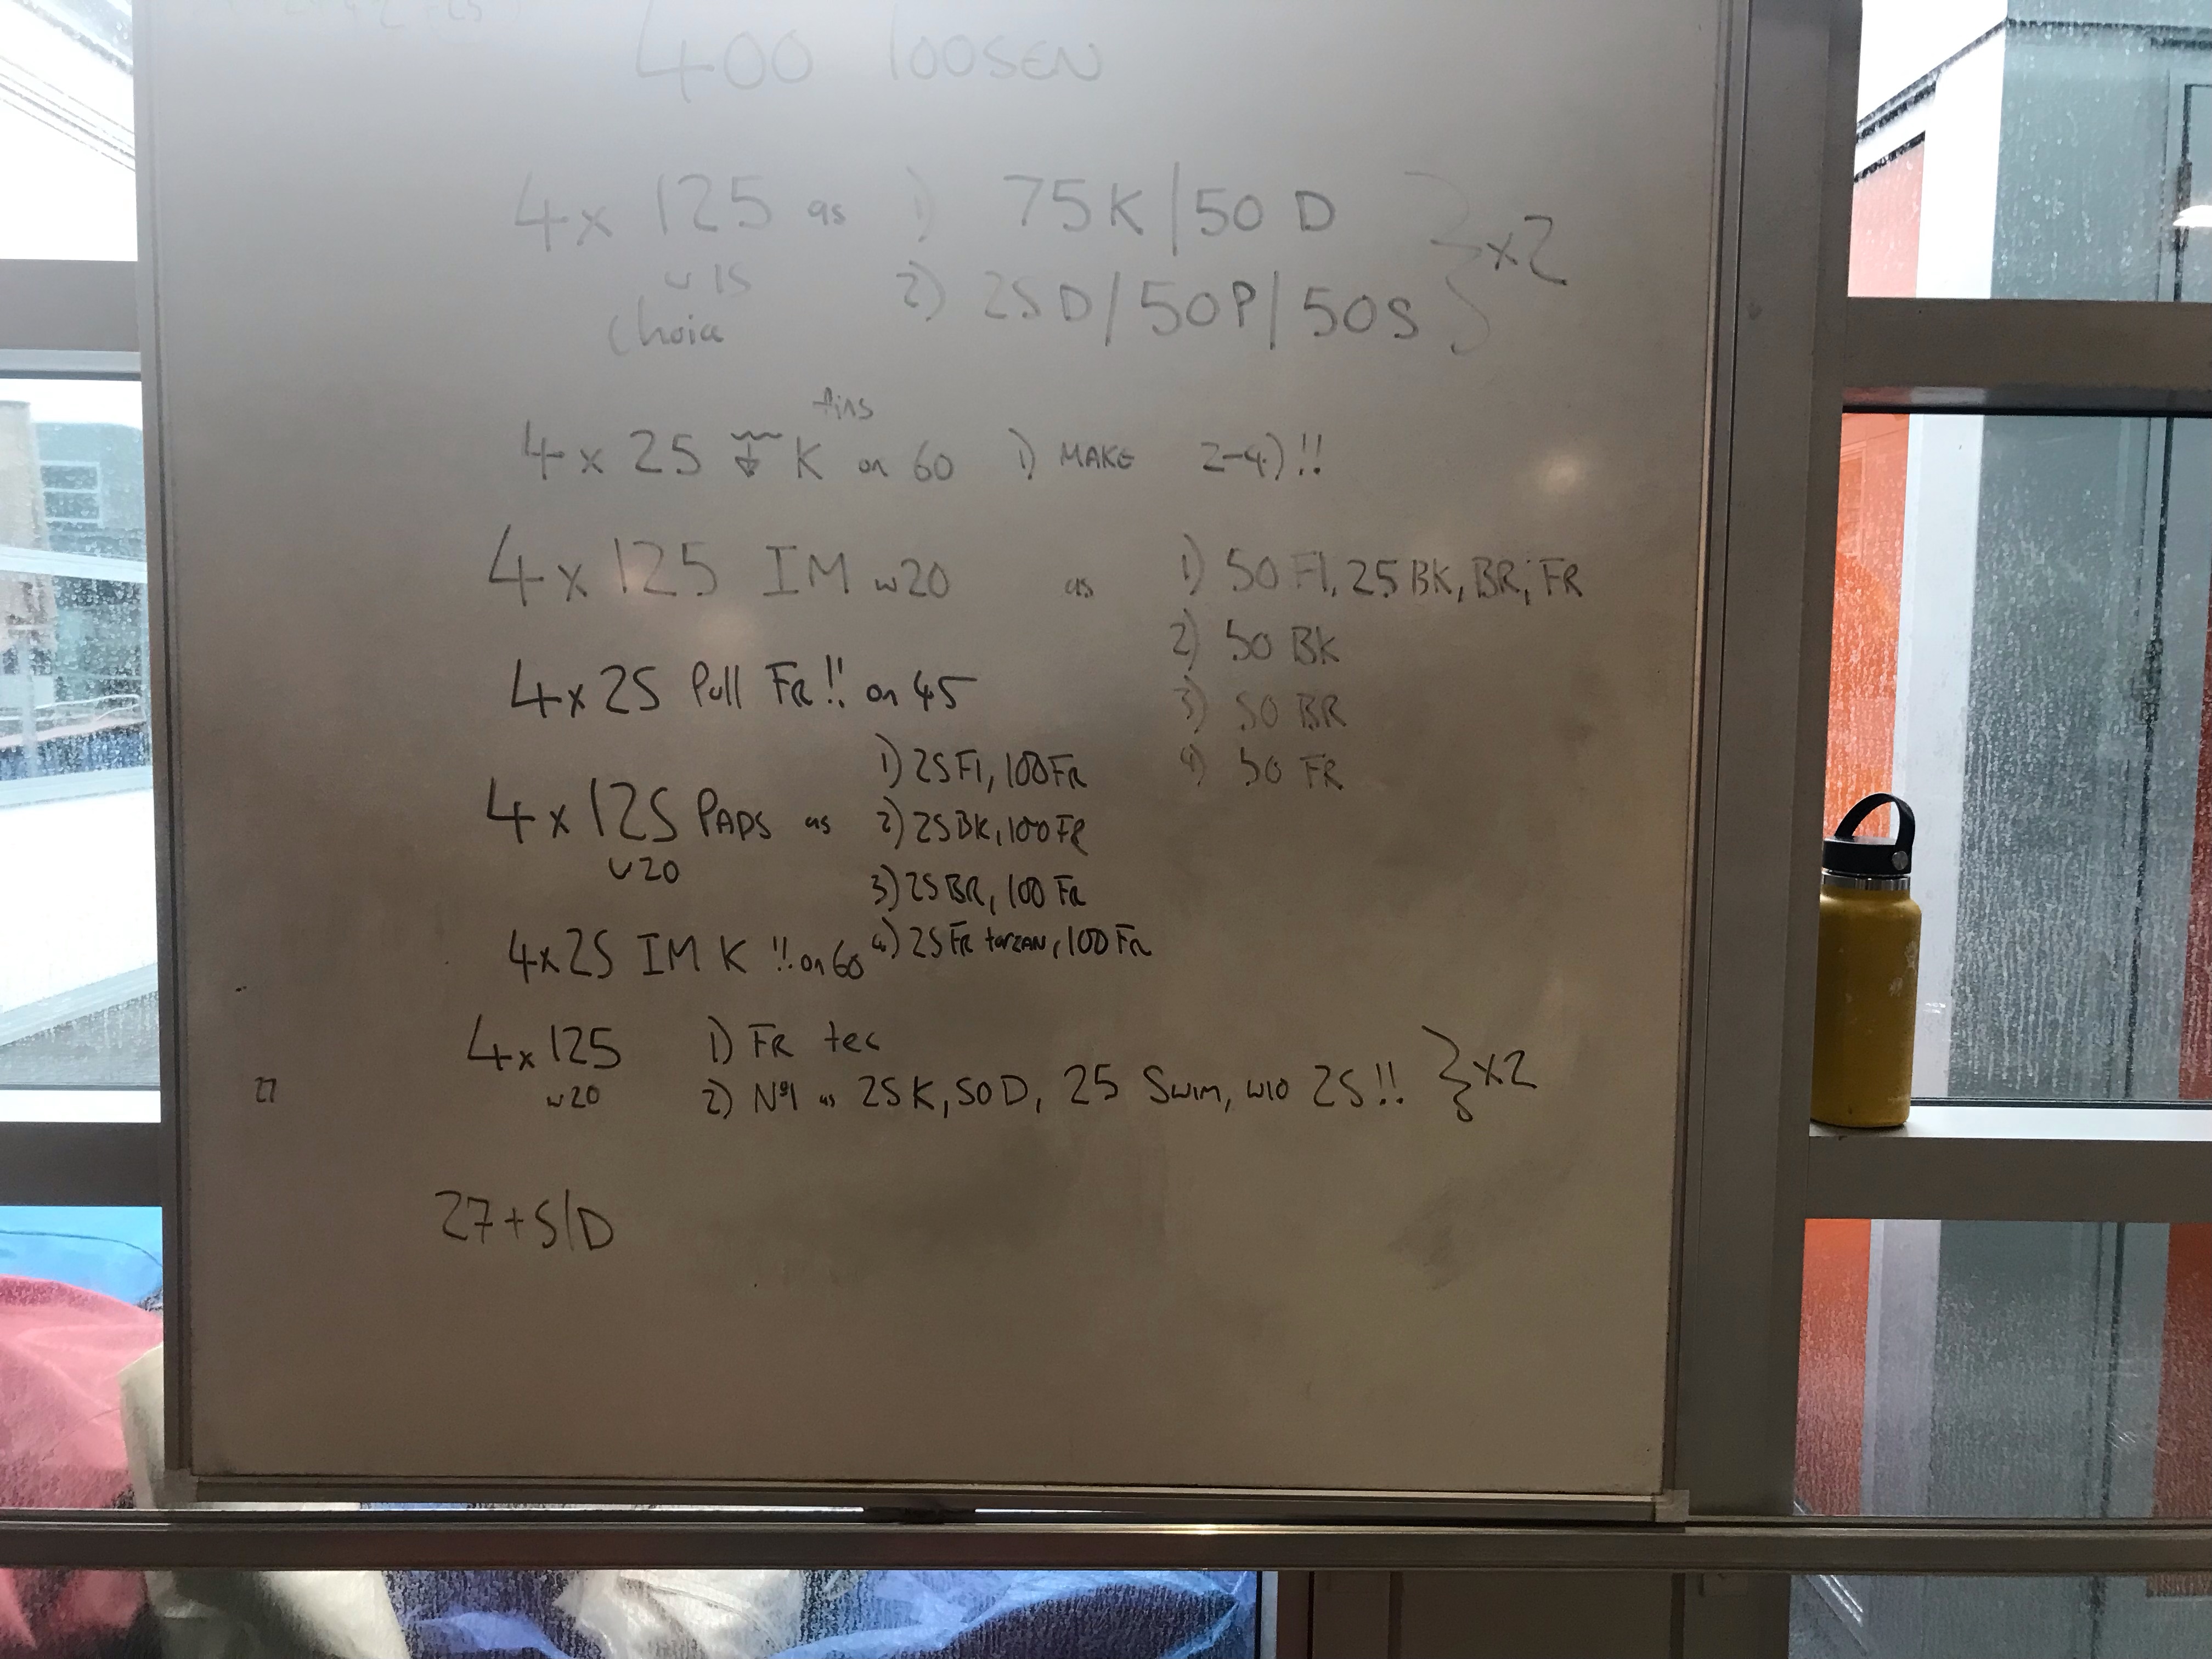 400 loosen
4x 125 as 1) 75K/50 D } x2
w15 2) 25D/50P/50S
choice
fins
4x 25 K on 60 1) MAKE 2-4)!!
4x 125 IM w20 as 1) 50 Fl, 25 BK, BR, FR
2) 50 BK
4x25 Pull FR!! on 45
3) 50 BR
4) 50 FR
1) 25 Fl, 100 FR
4x 125 PADS as 2) 25 BK, 100 FR
w20
3) 25 BR, 100 FR
4x25 IM K !! on 60 4) 25 FR tarzan, 100 FR
4x 125 1) FR tec
w20 2) Nº1 as 25 K, 50 D, 25 Swim, w10 25!! } x2
27
27+S/D